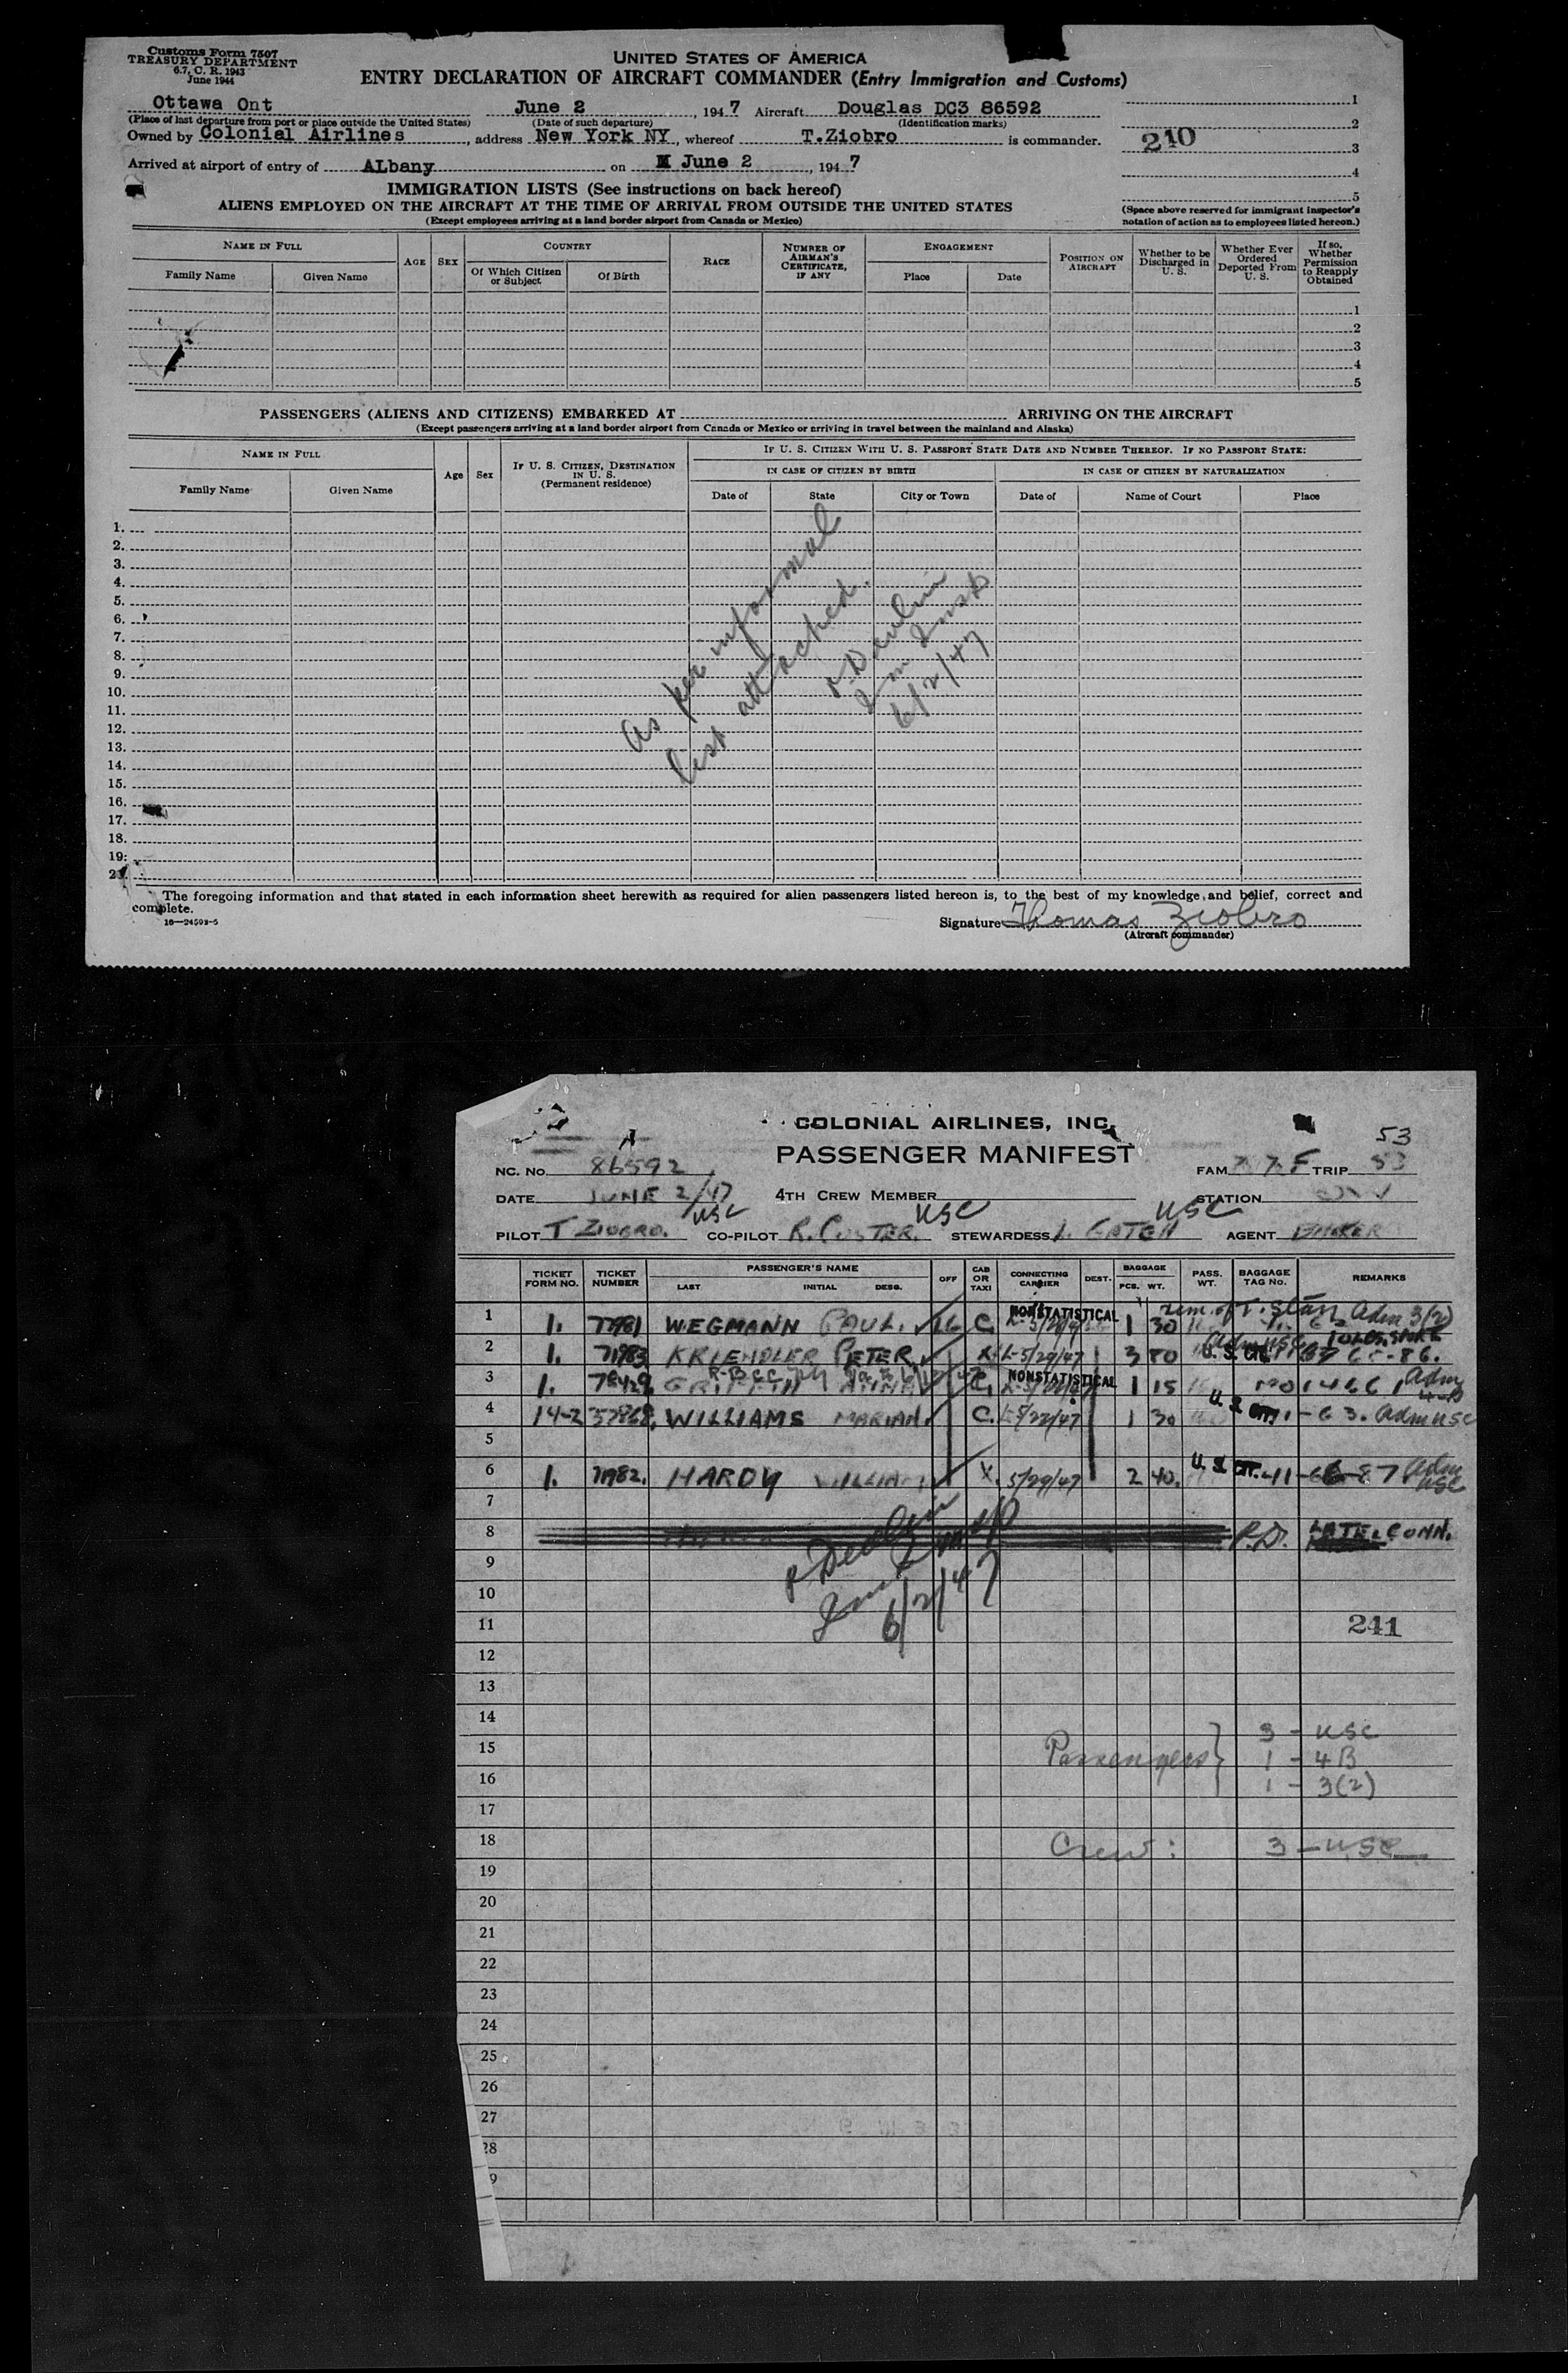 Customs Form 7507
TREASURY DEPARTMENT
6.7, C. R. 1943
June 1944
UNITED STATES OF AMERICA
ENTRY DECLARATION OF AIRCRAFT COMMANDER (Entry Immigration and Customs)
Ottawa Ont June 2, 1947 Aircraft Douglas DC3 86592
(Place of last departure from port or place outside the United States) (Date of such departure) (Identification marks)
Owned by Colonial Airlines, address New York NY, whereof T.Ziobro is commander.
Arrived at airport of entry of ALbany on June 2, 1947
1
2
210
3
4
5
(Space above reserved for immigrant inspector's notation of action as to employees listed hereon.)
IMMIGRATION LISTS (See instructions on back hereof)
ALIENS EMPLOYED ON THE AIRCRAFT AT THE TIME OF ARRIVAL FROM OUTSIDE THE UNITED STATES
(Except employees arriving at a land border airport from Canada or Mexico)
NAME IN FULL
Family Name Given Name
AGE SEX
COUNTRY
Of Which Citizen or Subject Of Birth
RACE
NUMBER OF AIRMAN'S CERTIFICATE, IF ANY
ENGAGEMENT
Place Date
POSITION ON AIRCRAFT
Whether to be Discharged in U. S.
Whether Ever Ordered Deported From U. S.
If so, Whether Permission to Reapply Obtained
1
2
3
4
5
PASSENGERS (ALIENS AND CITIZENS) EMBARKED AT ARRIVING ON THE AIRCRAFT
(Except passengers arriving at a land border airport from Canada or Mexico or arriving in travel between the mainland and Alaska)
NAME IN FULL
Family Name Given Name
Age Sex
IF U. S. CITIZEN, DESTINATION IN U. S.
(Permanent residence)
IF U. S. CITIZEN WITH U. S. PASSPORT STATE DATE AND NUMBER THEREOF. IF NO PASSPORT STATE:
IN CASE OF CITIZEN BY BIRTH IN CASE OF CITIZEN BY NATURALIZATION
Date of State City or Town Date of Name of Court Place
1.
2.
3.
4.
5.
6.
7.
8.
9.
10.
11.
12.
13.
14.
15.
16.
17.
18.
19.
As per informal
list attached.
R Devlin
Im Insp
6/2/47
The foregoing information and that stated in each information sheet herewith as required for alien passengers listed hereon is, to the best of my knowledge and belief, correct and
complete.
16—24598-5
Signature Thomas Ziobro
(Aircraft commander)
COLONIAL AIRLINES, INC.
PASSENGER MANIFEST
53
NC. NO. 86592 FAM TRIP
DATE JUNE 2/47 4TH CREW MEMBER STATION
USC USC USC
PILOT T ZIOBRO. CO-PILOT R. CUSTER. STEWARDESS AGENT
TICKET FORM NO. TICKET NUMBER PASSENGER'S NAME LAST INITIAL DESG. OFF CAB OR TAXI CONNECTING CARRIER DEST. BAGGAGE PCS. WT. PASS. WT. BAGGAGE TAG NO. REMARKS
1 1. WEGMANN PAUL. C. NONSTATISTICAL 1 30 Adm 3(2)
2 1. 71983 KRIENDLER PETER 5/29/47 3 80 Adm USC
3 1. C. NONSTATISTICAL 1 15 Adm
4 14-2 WILLIAMS MARIAN C. 1 30 Adm USC
5
6 1. 71982. HARDY X. 5/29/47 2 40. Adm USC
7
8 R.D. LATE CONN.
R Devlin
6/2/47
9
10
11 241
12
13
14
15
16
Passengers } 3 - USC
1 - 4B
1 - 3(2)
17
18 Crew: 3 - USC
19
20
21
22
23
24
25
26
27